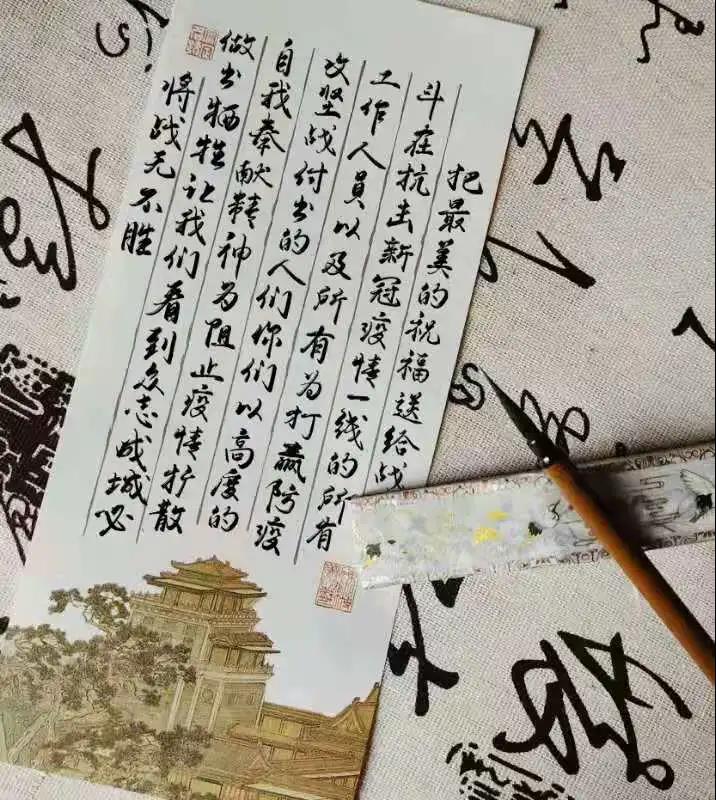 把最美的祝福送给战
斗在抗击新冠疫情一线的所有
工作人員以及所有为打赢防疫
攻坚战付出的人们你们以高度的
自我奉献精神为阻止疫情扩散
做出牺牲让我们看到众志成城必
将战无不胜